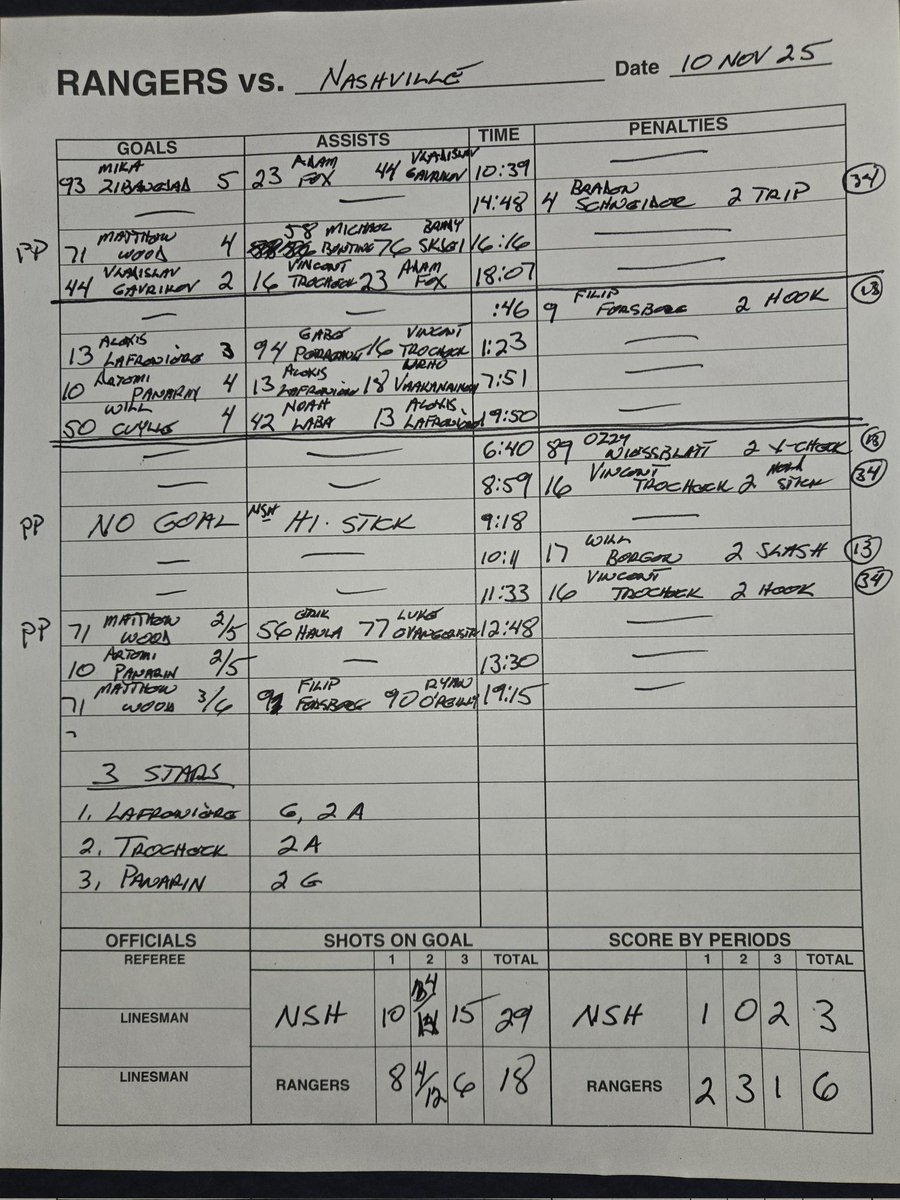 RANGERS vs. NASHVILLE Date 10 NOV 25
GOALS ASSISTS TIME PENALTIES
93 MIKA ZIBANEJAD 5 23 ADAM FOX 44 VLADISLAV GAVRIKOV 10:39 —
— — 14:48 4 BRADEN SCHNEIDER 2 TRIP 34
PP 71 MATTHEW WOOD 4 58 MICHAEL BUNTING 76 BRADY SKJEI 16:16 —
44 VLADISLAV GAVRIKOV 2 16 VINCENT TROCHECK 23 ADAM FOX 18:07 —
— — :46 9 FILIP FORSBERG 2 HOOK 13
13 ALEXIS LAFRENIÈRE 3 94 GABE PERREAULT 16 VINCENT TROCHECK 1:23 —
10 ARTEMI PANARIN 4 13 ALEXIS LAFRENIÈRE 18 URHO VAAKANAINEN 7:51 —
50 WILL CUYLLE 4 42 NOAH LABA 13 ALEXIS LAFRENIÈRE 19:50 —
— — 6:40 89 OZZY WIESBLATT 2 X-CHECK 13
— — 8:59 16 VINCENT TROCHECK 2 HIGH STICK 34
PP NO GOAL NSH HI-STICK 9:18 —
— — 10:11 17 WILL BORGEN 2 SLASH 13
— — 11:33 16 VINCENT TROCHECK 2 HOOK 34
PP 71 MATTHEW WOOD 2/5 56 ERIK HAULA 77 LUKE EVANGELISTA 12:48 —
10 ARTEMI PANARIN 2/5 — 13:30 —
71 MATTHEW WOOD 3/6 9 FILIP FORSBERG 90 RYAN O'REILLY 19:15 —
3 STARS
1. LAFRENIÈRE G, 2 A
2. TROCHECK 2A
3. PANARIN 2 G
OFFICIALS SHOTS ON GOAL SCORE BY PERIODS
REFEREE 1 2 3 TOTAL 1 2 3 TOTAL
NSH 10 4/14 15 29 NSH 1 0 2 3
LINESMAN
LINESMAN RANGERS 8 4/12 6 18 RANGERS 2 3 1 6